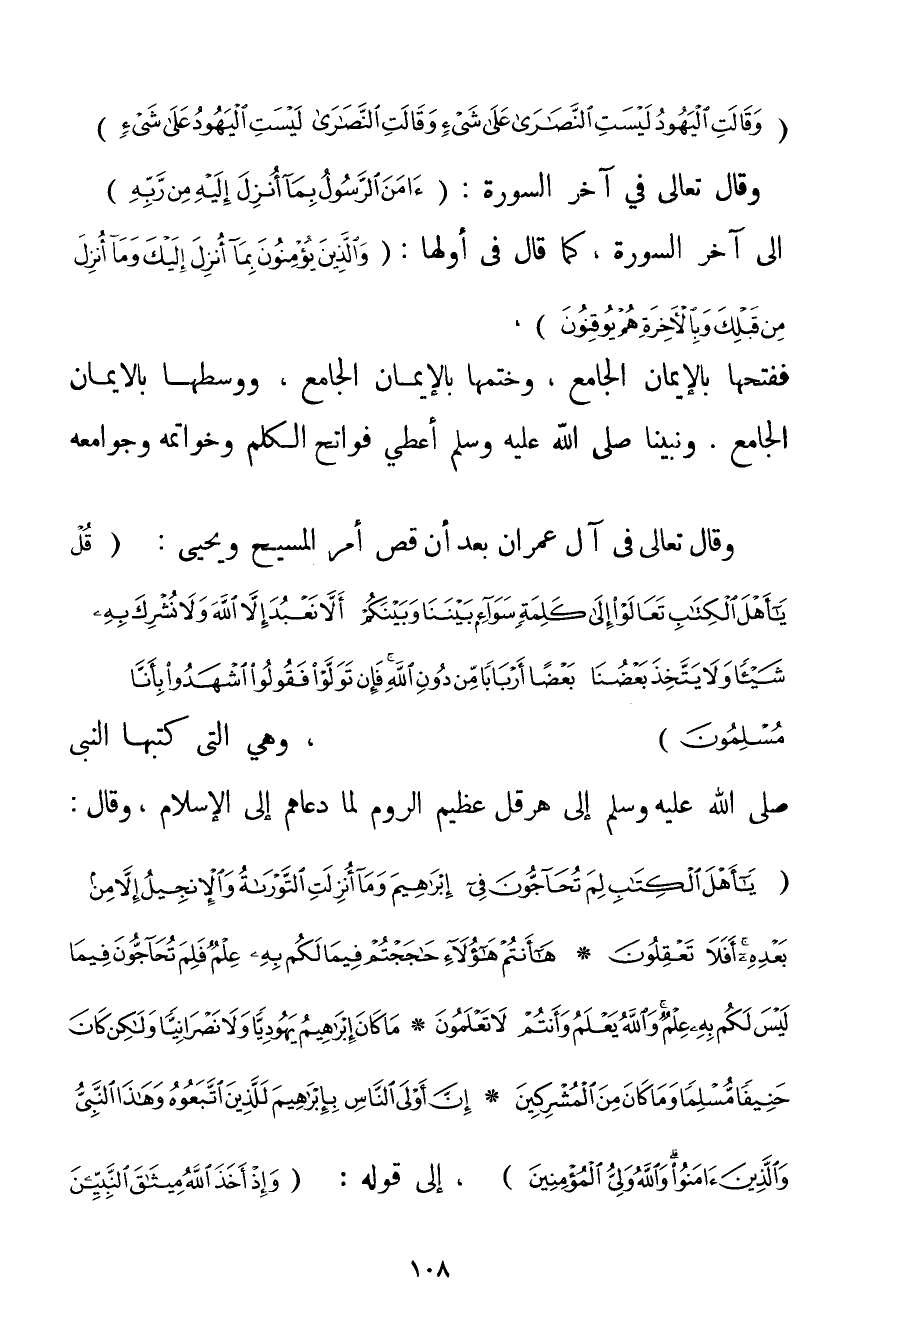 ( وَقَالَتِ ٱلْيَهُودُ لَيْسَتِ ٱلنَّصَٰرَىٰ عَلَىٰ شَىْءٍ وَقَالَتِ ٱلنَّصَٰرَىٰ لَيْسَتِ ٱلْيَهُودُ عَلَىٰ شَىْءٍ )
وقال تعالى في آخر السورة : ( ءَامَنَ ٱلرَّسُولُ بِمَآ أُنزِلَ إِلَيْهِ مِن رَّبِّهِۦ )
الى آخر السورة ، كما قال فى أولها : ( وَٱلَّذِينَ يُؤْمِنُونَ بِمَآ أُنزِلَ إِلَيْكَ وَمَآ أُنزِلَ
مِن قَبْلِكَ وَبِٱلْأَخِرَةِ هُمْ يُوقِنُونَ ) ،
ففتحها بالإيمان الجامع ، وختمها بالإيمان الجامع ، ووسطها بالايمان
الجامع . ونبينا صلى الله عليه وسلم أعطي فواتح الكلم وخواتمه وجوامعه
وقال تعالى فى آل عمران بعد أن قص أمر المسيح ويحيى : ( قُلْ
يَٰٓأَهْلَ ٱلْكِتَٰبِ تَعَالَوْا۟ إِلَىٰ كَلِمَةٍ سَوَآءٍ بَيْنَنَا وَبَيْنَكُمْ أَلَّا نَعْبُدَ إِلَّا ٱللَّهَ وَلَا نُشْرِكَ بِهِۦ
شَيْـًٔا وَلَا يَتَّخِذَ بَعْضُنَا بَعْضًا أَرْبَابًا مِّن دُونِ ٱللَّهِ ۚ فَإِن تَوَلَّوْا۟ فَقُولُوا۟ ٱشْهَدُوا۟ بِأَنَّا
مُسْلِمُونَ ) ، وهي التى كتبها النبى
صلى الله عليه وسلم إلى هرقل عظيم الروم لما دعاهم إلى الإسلام ، وقال :
( يَٰٓأَهْلَ ٱلْكِتَٰبِ لِمَ تُحَآجُّونَ فِىٓ إِبْرَٰهِيمَ وَمَآ أُنزِلَتِ ٱلتَّوْرَىٰةُ وَٱلْإِنجِيلُ إِلَّا مِنۢ
بَعْدِهِۦٓ ۚ أَفَلَا تَعْقِلُونَ * هَٰٓأَنتُمْ هَٰٓؤُلَآءِ حَٰجَجْتُمْ فِيمَا لَكُم بِهِۦ عِلْمٌ فَلِمَ تُحَآجُّونَ فِيمَا
لَيْسَ لَكُم بِهِۦ عِلْمٌ ۚ وَٱللَّهُ يَعْلَمُ وَأَنتُمْ لَا تَعْلَمُونَ * مَا كَانَ إِبْرَٰهِيمُ يَهُودِيًّا وَلَا نَصْرَانِيًّا وَلَٰكِن كَانَ
حَنِيفًا مُّسْلِمًا وَمَا كَانَ مِنَ ٱلْمُشْرِكِينَ * إِنَّ أَوْلَى ٱلنَّاسِ بِإِبْرَٰهِيمَ لَلَّذِينَ ٱتَّبَعُوهُ وَهَٰذَا ٱلنَّبِىُّ
وَٱلَّذِينَ ءَامَنُوا۟ ۗ وَٱللَّهُ وَلِىُّ ٱلْمُؤْمِنِينَ ) ، إلى قوله : ( وَإِذْ أَخَذَ ٱللَّهُ مِيثَٰقَ ٱلنَّبِيِّـۧنَ
١٠٨